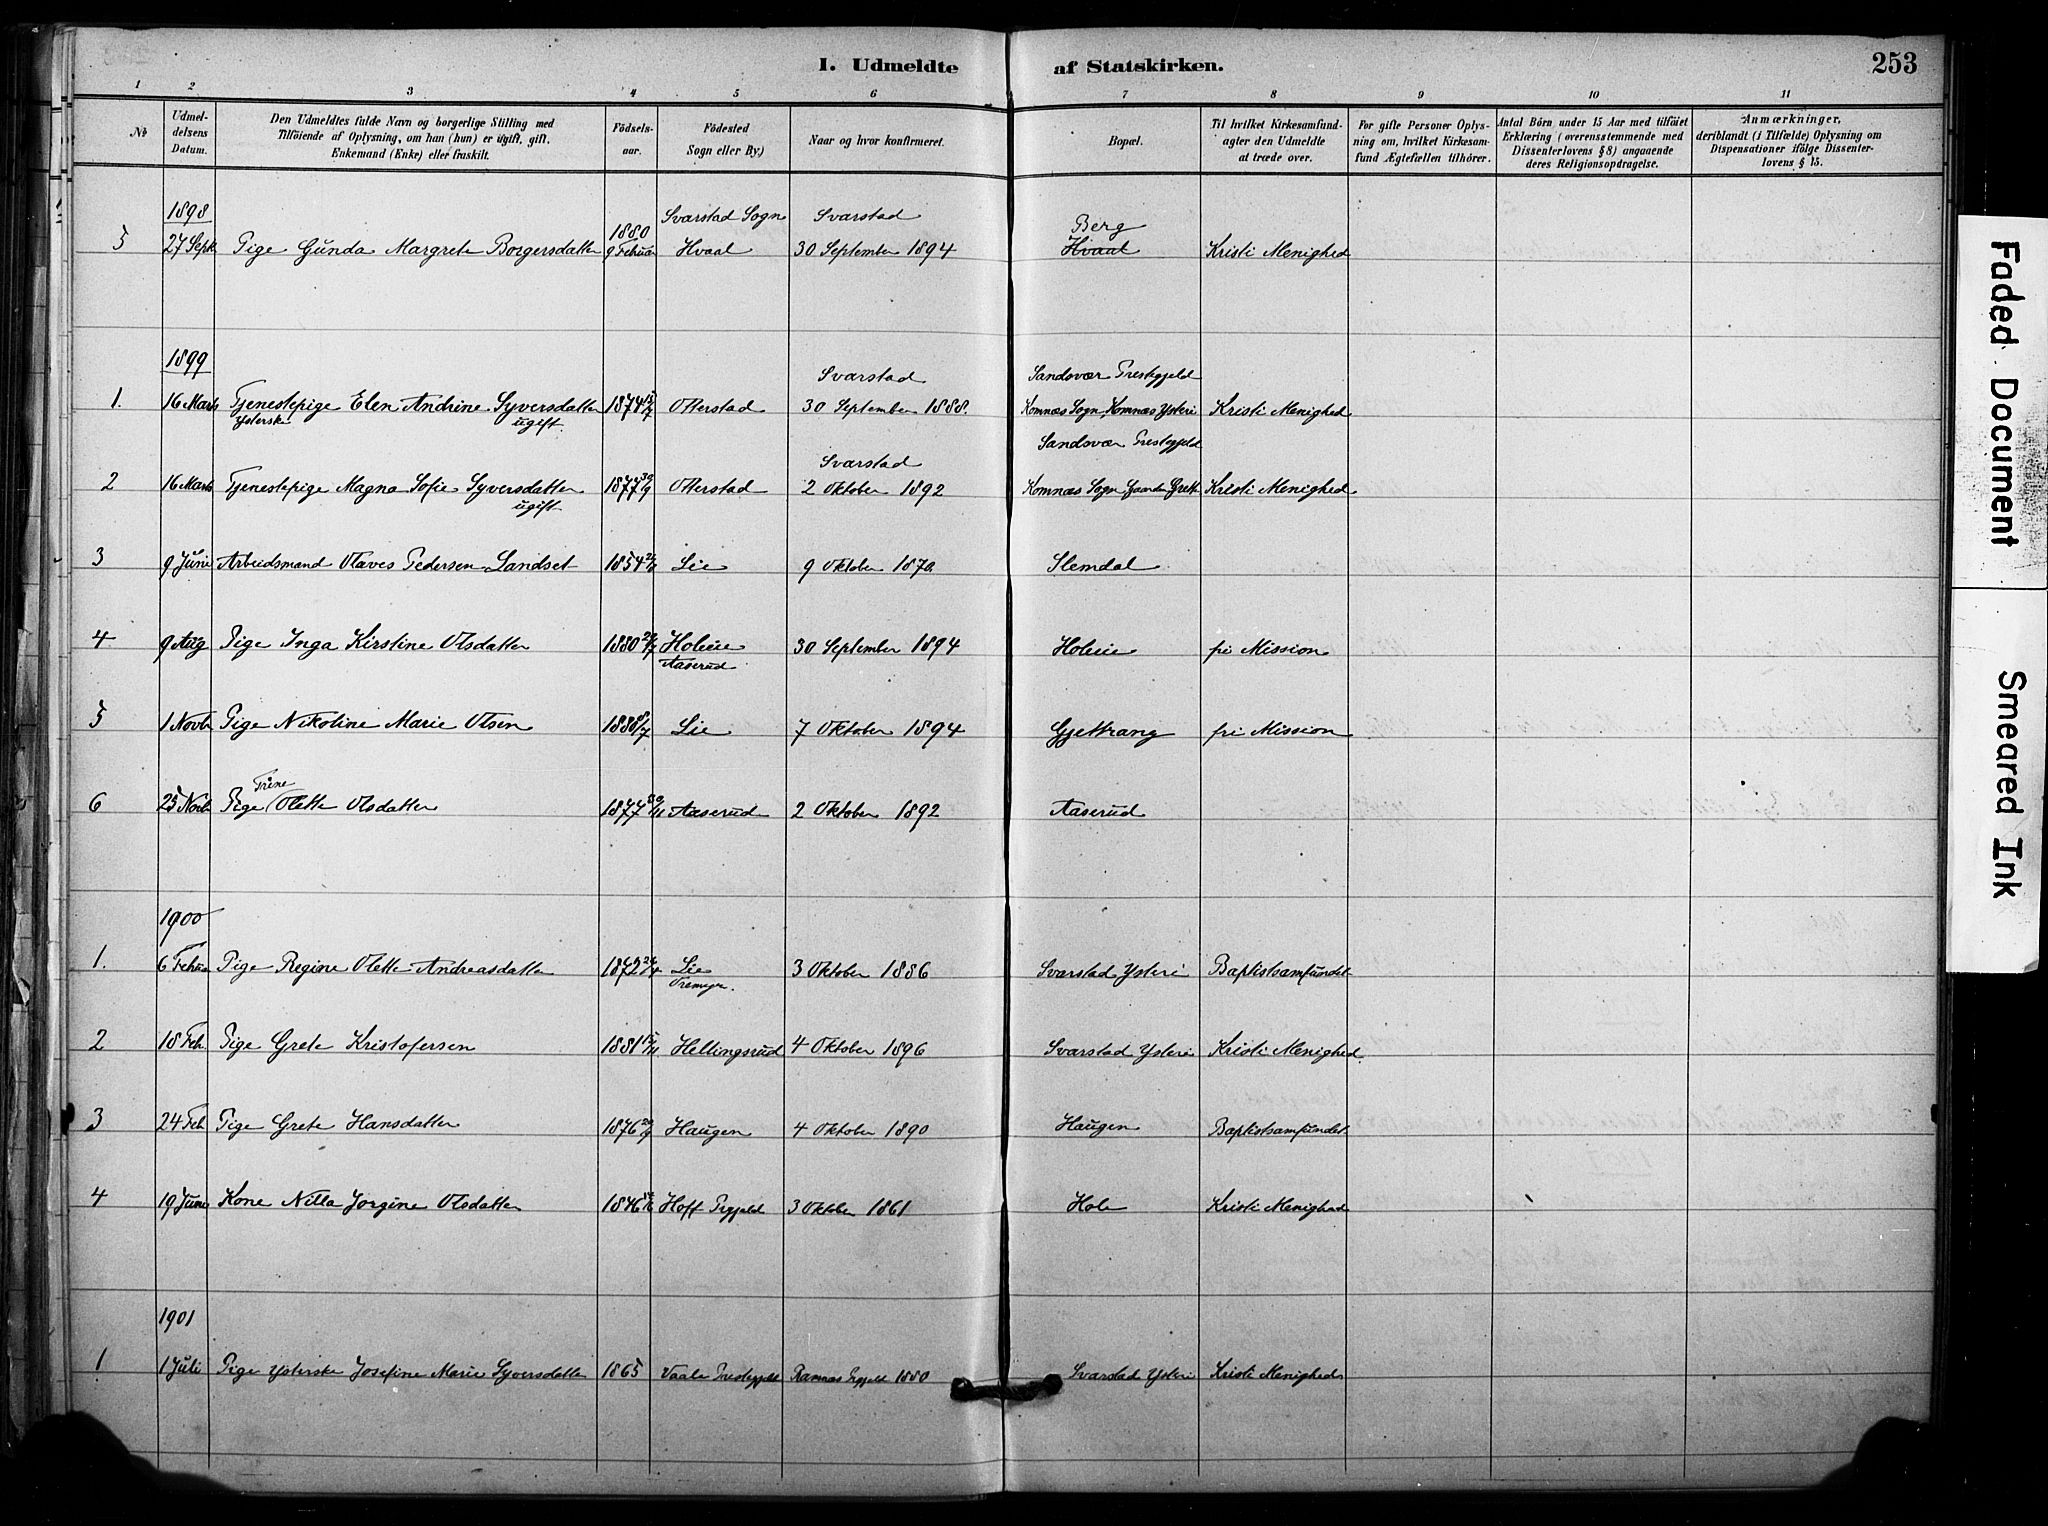 I. Udmeldte af Statskirken. 253
1 2 3 4 5 6 7 8 9 10 11
No
Udmel-
delsens
Datum.
Den Udmeldtes fulde Navn og borgerlige Stilling med
Tilföiende af Oplysning, om han (hun) er ugift, gift,
Enkemand (Enke) eller fraskilt.
Födsels-
aar.
Födested
Sogn eller By;)
Naar og hvor konfirmeret.
Bopæl.
Til hvilket Kirkesamfund-
agter den Udmeldte
at træde over.
For gifte Personer Oplys-
ning om, hvilket Kirkesam-
fund Ægtefællen tilhörer.
Antal Börn under 15 Aar med tilföiet
Erklæring (overensstemmende med
Dissenterlovens § 8) angaaende
deres Religionsopdragelse.
Anmærkninger,
deriblandt (i Tilfælde) Oplysning om
Dispensationer ifölge Dissenter-
lovens § 15.
1898 Svarstad Sogn Svarstad Berg
5 27 Sept Pige Gunda Margrete Borgersdatter 1880 9 Februar Hvaal 30 September 1894 Hvaal Kristi Menighed
1899 Svarstad Sandsvær Prestegjeld
1. 16 Marts Tjenestepige Elen Andrine Syversdatter 1874 Otterstad 30 September 1888. Komnæs Sogn, Komnæs Ysteri Kristi Menighed
Ysterske ugift.
Svarstad Sandsvær Prestegjeld
2 16 Marts Tjenestepige Magna Sofie Syversdatter 1877 Otterstad 2 Oktober 1892 Komnæs Sogn Gaarden Kristi Menighed
ugift
3 9 Juni Arbeidsmand Olaves Pedersen Landset 1854 Lie 9 Oktober 1870. Slemdal
4 9 Aug Pige Inga Kirstine Olsdatter 1880 Holeie 30 September 1894 Holeie fri Mission
Aaserud
5 1 Novb Pige Nikoline Marie Olsen Lie 7 Oktober 1894 Gjettrang fri Mission
Trine
6 25 Novb Pige Olette Olsdatter 1877 Aaserud 2 Oktober 1892 Aaserud
1900
1. 6 Februar Pige Regine Olette Andreasdatter 1872 Lie 3 Oktober 1886 Svarstad Ysteri Baptistsamfundet
2 18 Feb. Pige Grete Kristofersen 1881 Hellingsrud 4 Oktober 1896 Svarstad Ysteri Kristi Menighed
3 24 Feb Pige Grete Hansdatter 1876 Haugen 4 Oktober 1890 Haugen Baptistsamfundet
4 19 Juni Kone Nilla Jorgine Olsdatter 1846 Hoff Prgjeld 3 Oktober 1861 Hole Kristi Menighed
1901
1 1 Juli Pige Ysterske Josefine Marie Syversdatter 1865 Vaale Prestegjeld Ramnæs Prgjeld 1880 Svarstad Ysteri Kristi Menighed
Faded Document
Smeared Ink